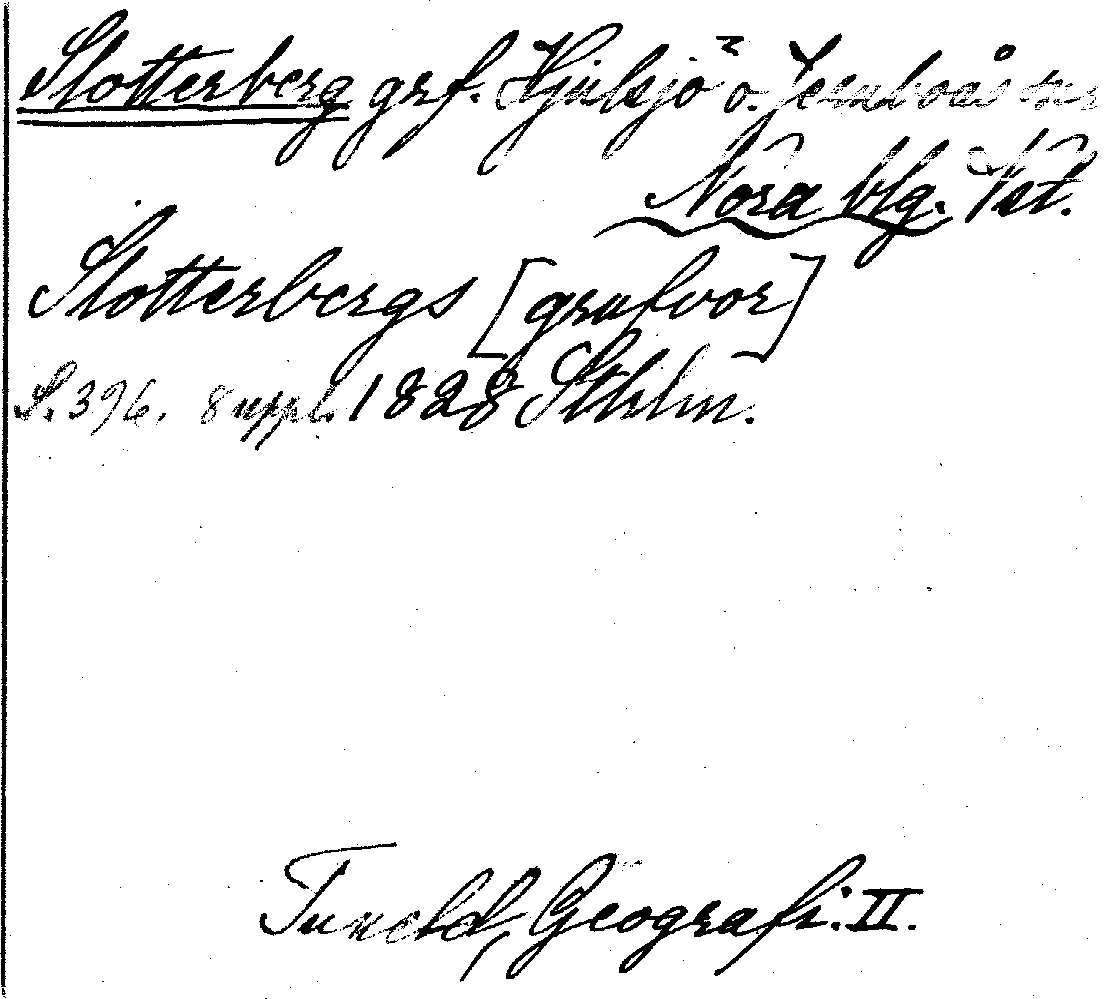 Slotterberg grf. Hjulsjö o. Jernboås snr
Nora blg. Vst.
Slotterbergs [grufvor]
S. 396. 8 uppl. 1828 Sthlm.
Tuneld, Geografi. II.